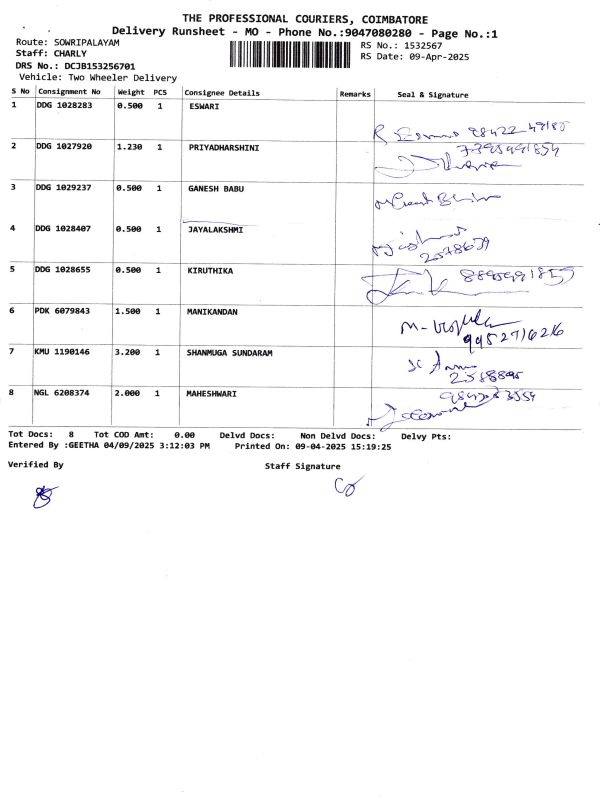 THE PROFESSIONAL COURIERS, COIMBATORE
Delivery Runsheet - MO - Phone No.:9047080280 - Page No.:1
Route: SOWRIPALAYAM
RS No.: 1532567
Staff: CHARLY
RS Date: 09-Apr-2025
DRS No.: DCJB153256701
Vehicle: Two Wheeler Delivery
S No Consignment No Weight PCS Consignee Details Remarks Seal & Signature
1 DDG 1028283 0.500 1 ESWARI
2 DDG 1027920 1.230 1 PRIYADHARSHINI
3 DDG 1029237 0.500 1 GANESH BABU
4 DDG 1028407 0.500 1 JAYALAKSHMI
2578639
5 DDG 1028655 0.500 1 KIRUTHIKA
6 PDK 6079843 1.500 1 MANIKANDAN
9952716216
7 KMU 1190146 3.200 1 SHANMUGA SUNDARAM
8 NGL 6208374 2.000 1 MAHESHWARI
Tot Docs: 8 Tot COD Amt: 0.00 Delvd Docs: Non Delvd Docs: Delvy Pts:
Entered By :GEETHA 04/09/2025 3:12:03 PM Printed On: 09-04-2025 15:19:25
Verified By Staff Signature